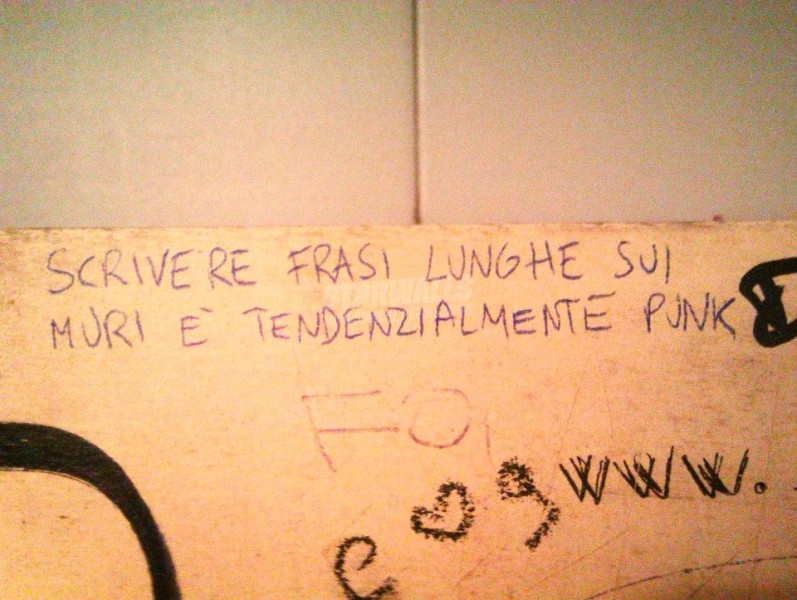 SCRIVERE FRASI LUNGHE SUI
MURI È TENDENZIALMENTE PUNK
FO
e ♥ g www.